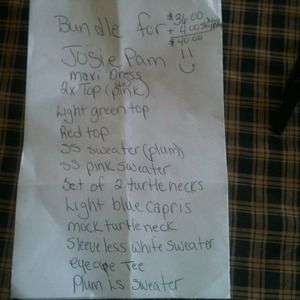 Bundle for
$36.00
+ 4.00
$40.00
Josie Pam
maxi Dress
2x Top (pink)
Light green top
Red top
SS sweater (plum)
SS pink sweater
Set of 2 turtle necks
Light blue capris
mock turtleneck
Sleeveless white sweater
Tee
Plum LS sweater